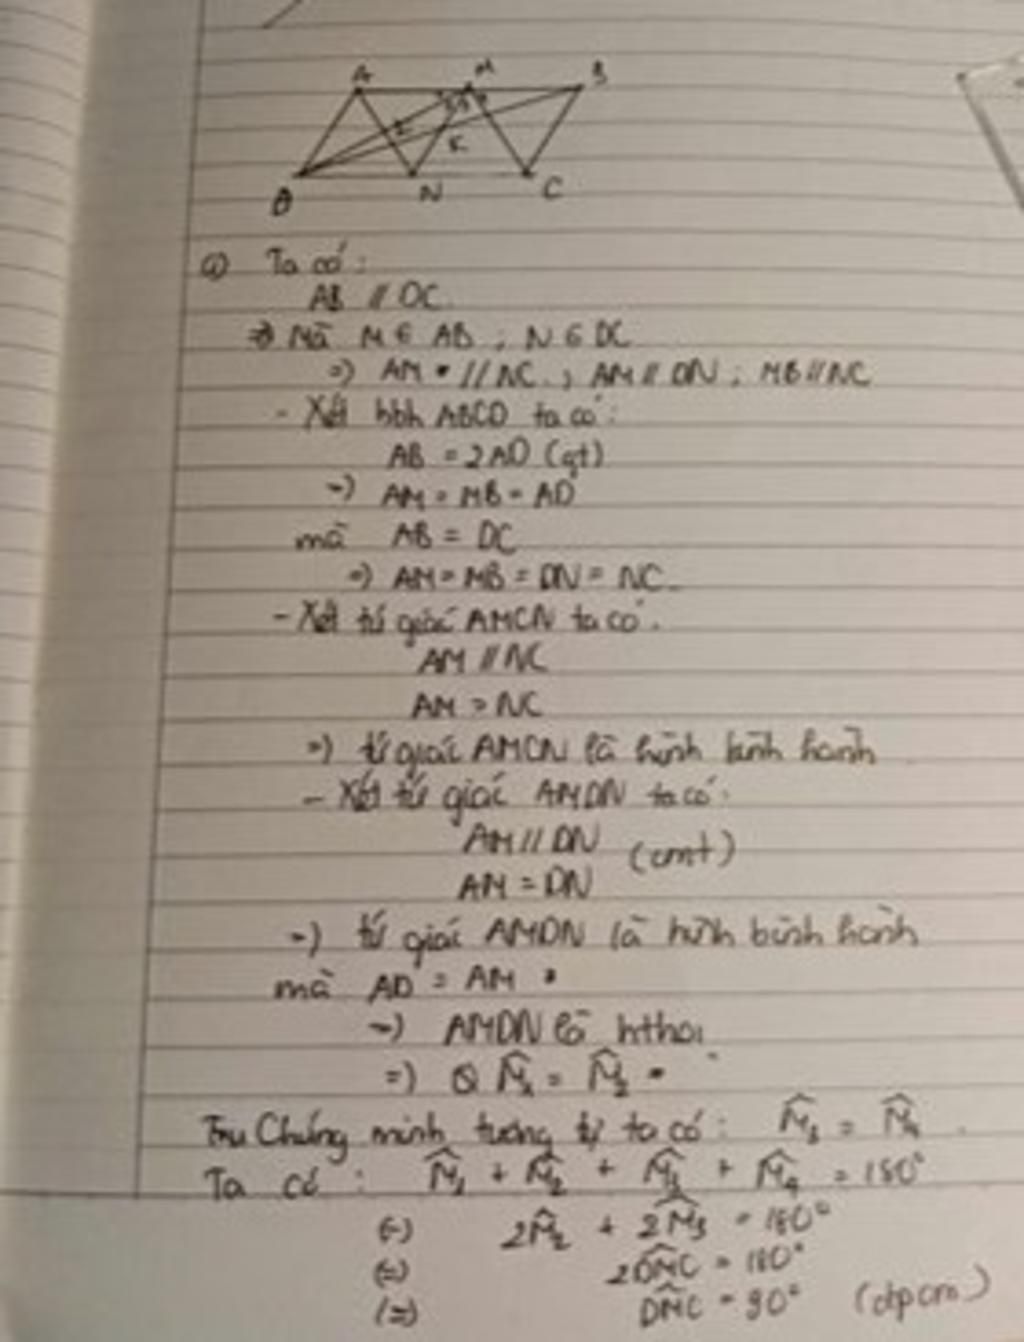 A M B
I K
D N C
a) Ta có:
AB // DC
=) Mà M ∈ AB ; N ∈ DC
=) AM // NC ; AM // DN ; MB // NC
- Xét hbh ABCD ta có:
AB = 2AD (gt)
=) AM = MB = AD
mà AB = DC
=) AM = MB = DN = NC
- Xét tứ giác AMCN ta có:
AM // NC
AM = NC
=) tứ giác AMCN là hình bình hành
- Xét tứ giác AMDN ta có:
AM // DN
(cmt)
AM = DN
=) tứ giác AMDN là hình bình hành
mà AD = AM
=) AMDN là hthoi
=) M̂₁ = M̂₂
Chứng minh tương tự ta có: M̂₃ = M̂₄
Ta có: M̂₁ + M̂₂ + M̂₃ + M̂₄ = 180°
(=) 2M̂₂ + 2M̂₃ = 180°
(=) 2DMC = 180°
(=) DMC = 90° (đpcm)